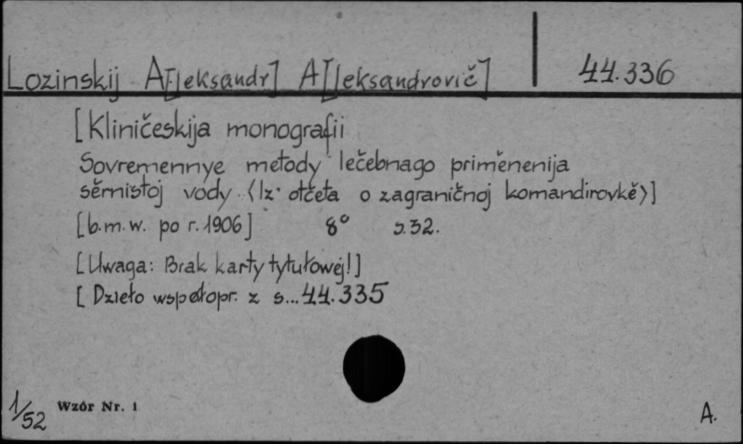 Lozinskij A[leksandr] A[leksandrovič] 44.336
[Kliničeskija monografii
Sovremennye metody lečebnago priměnenija
sěrnistoj vody. <Iz otčeta o zagraničnoj komandirovkě>]
[b.m.w. po r. 1906] 8° s.32.
[Uwaga: Brak karty tytułowej!]
[Dzieło współopr. z s...44.335
1/52 Wzór Nr. 1 A.